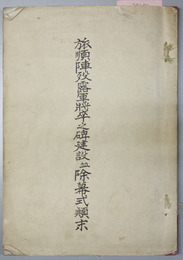 旅順陣歿露軍將卒之碑建設並除幕式顛末